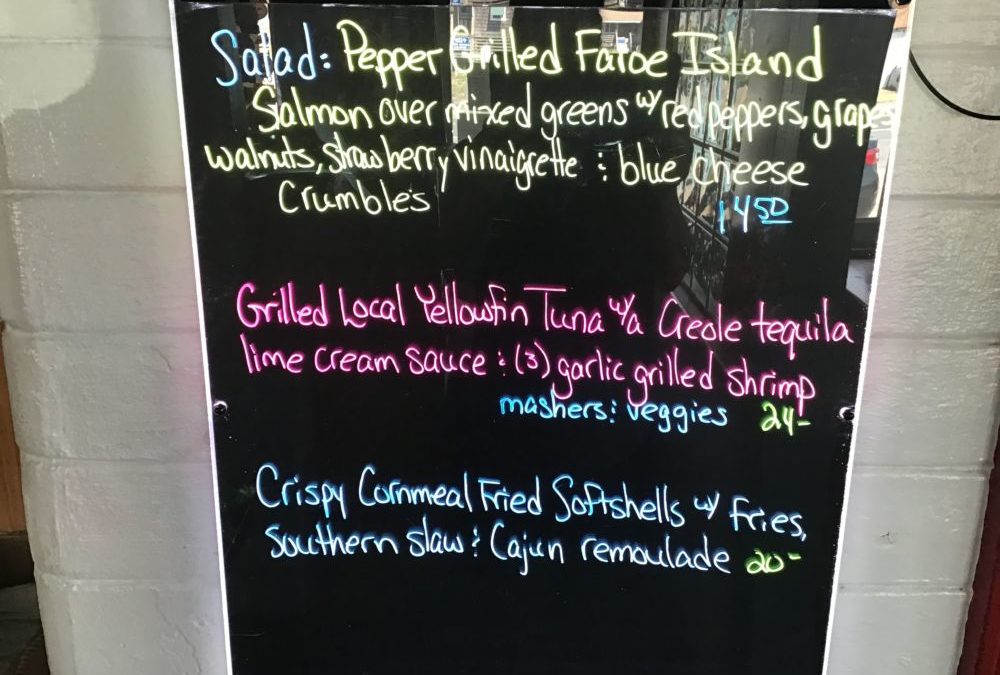 Salad: Pepper Grilled Faroe Island
Salmon over mixed greens w/ red peppers, grapes
walnuts, strawberry vinaigrette & blue cheese
Crumbles 14 50
Grilled Local Yellowfin Tuna w/a Creole tequila
lime cream sauce & (3) garlic grilled shrimp
mashers & veggies 24-
Crispy Cornmeal Fried Softshells w/ fries,
Southern slaw & Cajun remoulade 20-